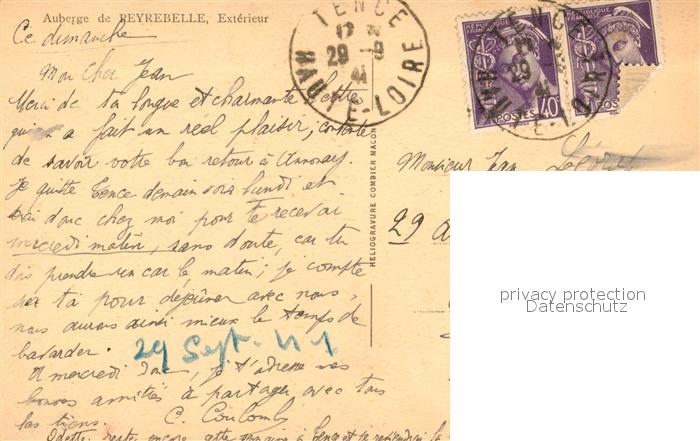 Auberge de PEYREBELLE, Extérieur
Ce dimanche
Mon Cher Jean
Merci de ta longue et charmante lettre
qui m'a fait un réel plaisir, contente
de savoir votre bon retour à Annonay.
Je quitte Tence demain soir lundi et
serai donc chez moi pour te recevoir
mercredi matin, sans doute, car tu
dois prendre un car le matin; je compte
sur toi pour déjeuner avec nous,
nous aurons ainsi mieux le temps de
bavarder.
29 Sept. 41
A mercredi donc, je t'adresse mes
bonnes amitiés à partager avec tous
les tiens. C. Coulomb
Odette reste encore cette semaine à Tence et je reviendrai la
HELIOGRAVURE COMBIER MACON
TENCE
17
29 -9
41
HAUTE-LOIRE
RÉPUBLIQUE FRANÇAISE
POSTES 40c
TENCE
29
41
HAUTE-LOIRE
Monsieur Jean
29
privacy protection
Datenschutz